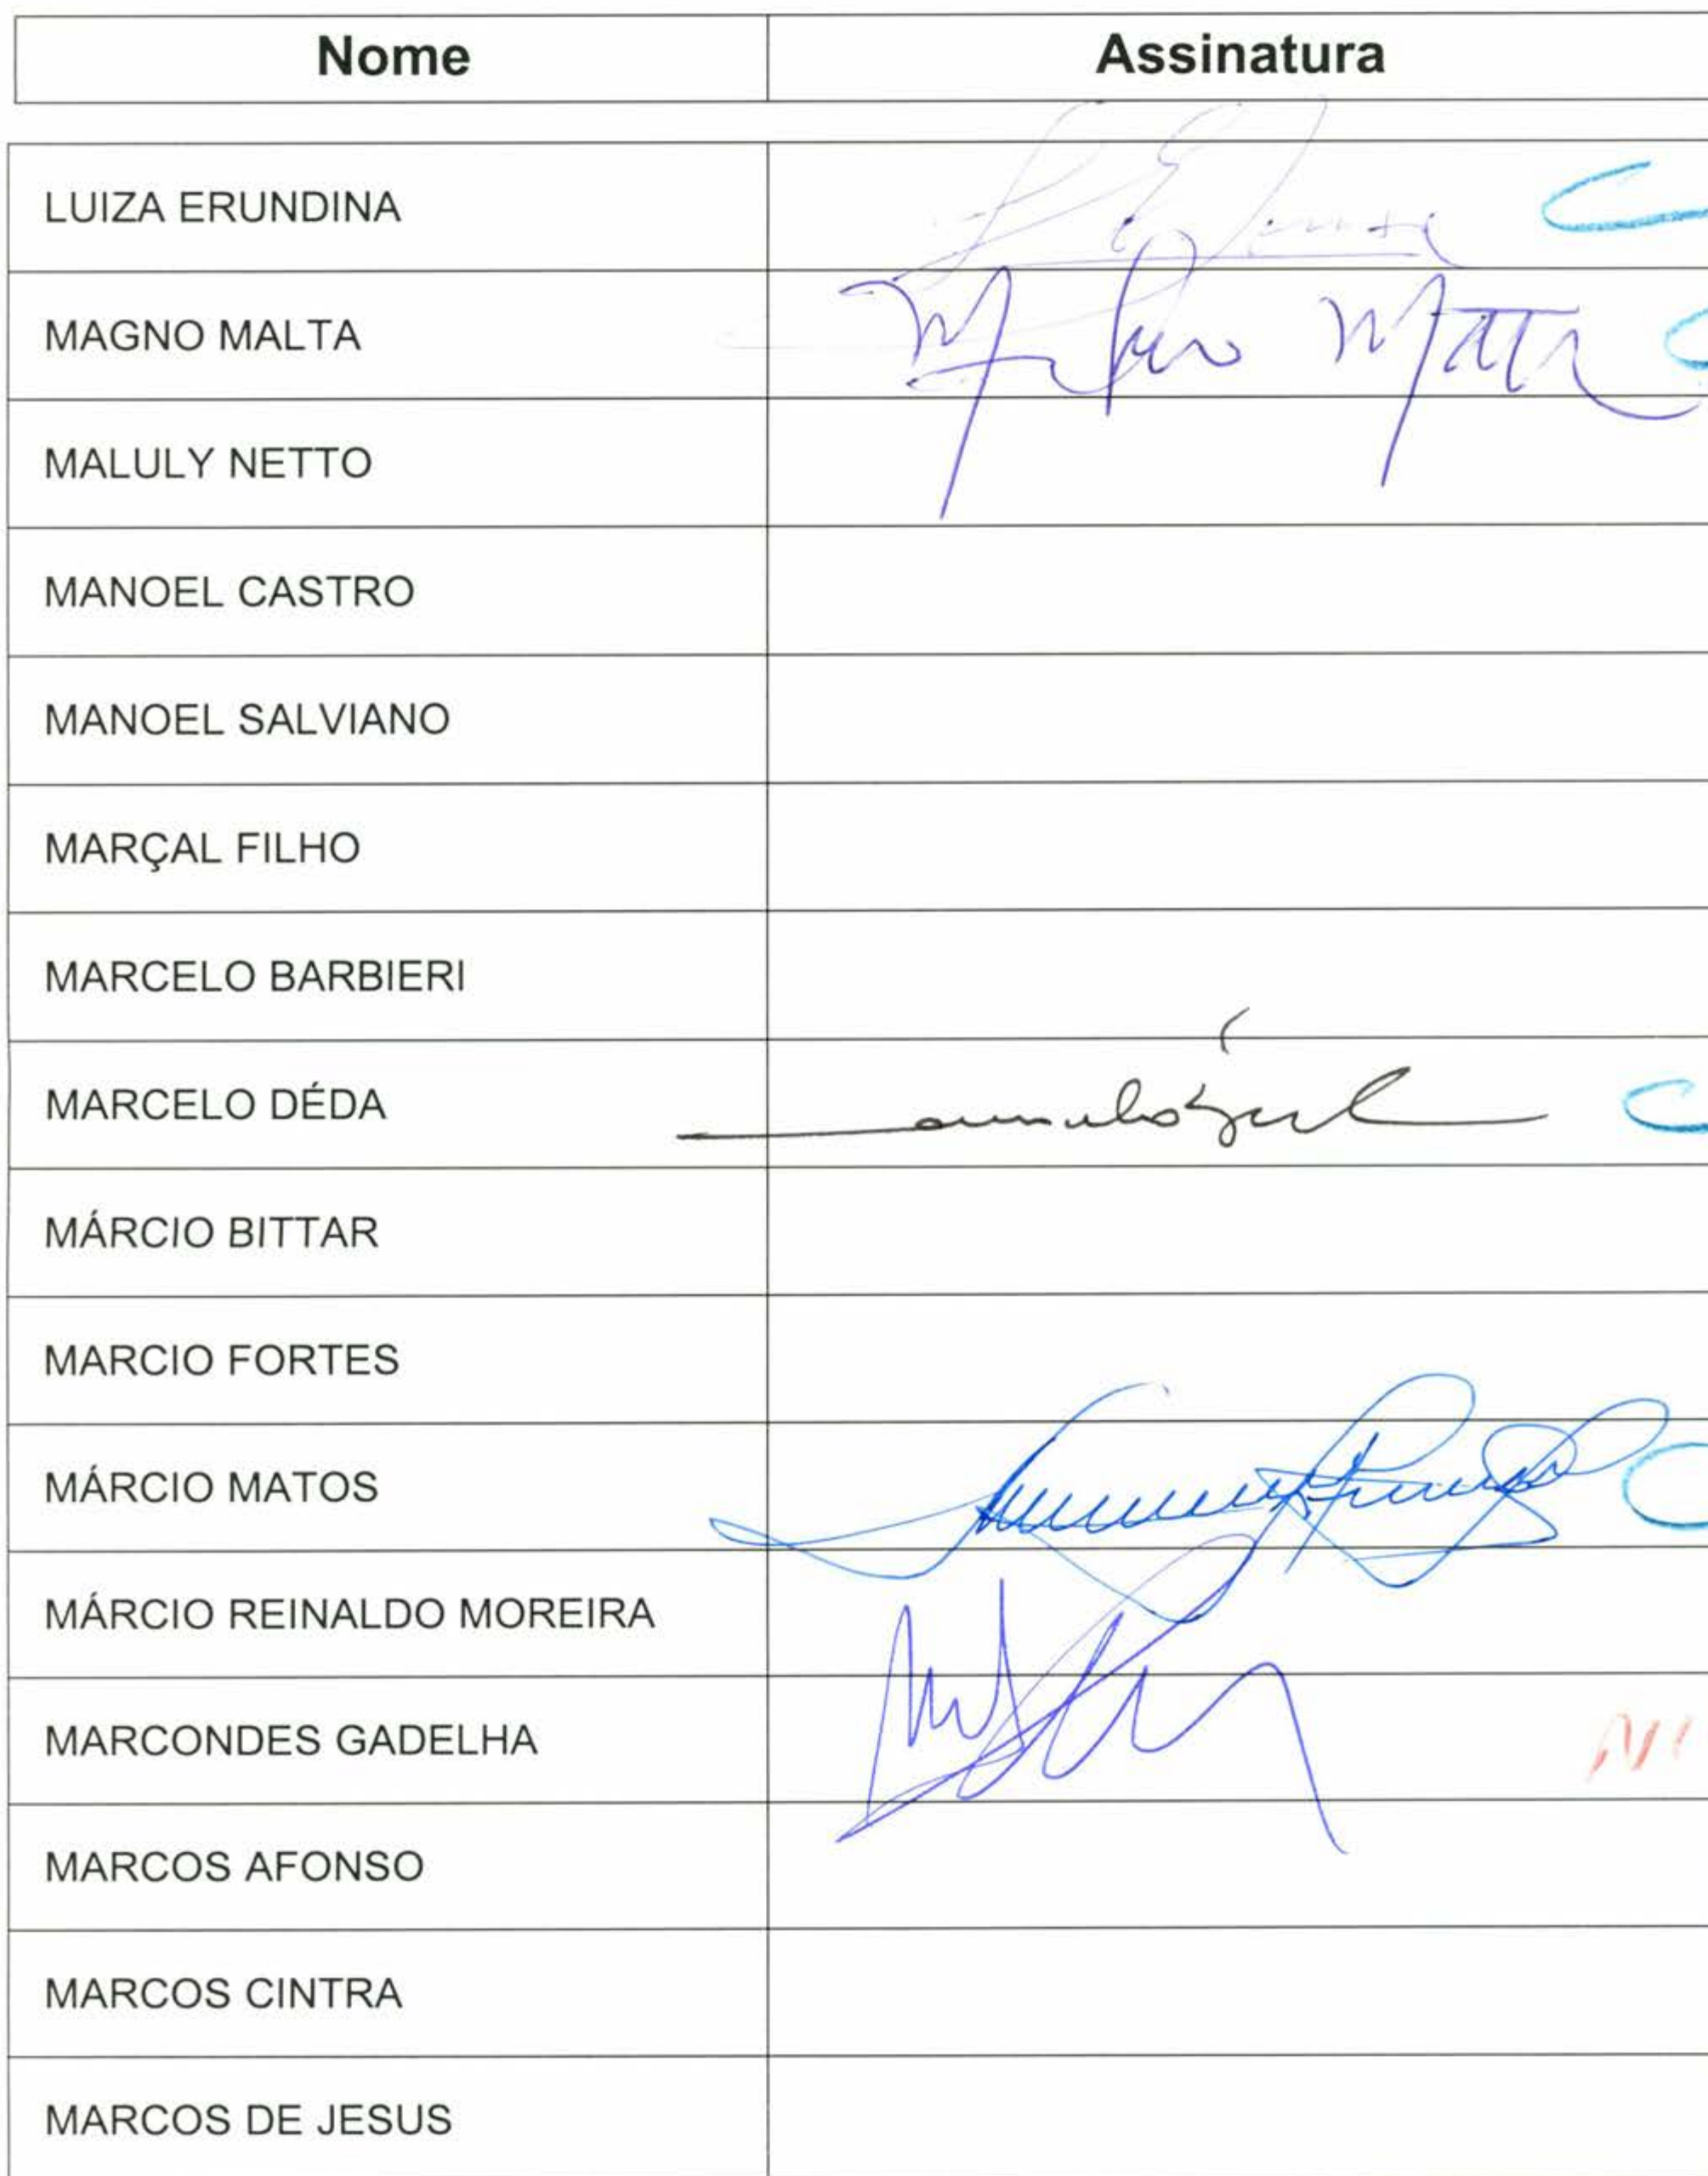 Nome Assinatura
LUIZA ERUNDINA
MAGNO MALTA
MALULY NETTO
MANOEL CASTRO
MANOEL SALVIANO
MARÇAL FILHO
MARCELO BARBIERI
MARCELO DÉDA
MÁRCIO BITTAR
MARCIO FORTES
MÁRCIO MATOS
MÁRCIO REINALDO MOREIRA
MARCONDES GADELHA
MARCOS AFONSO
MARCOS CINTRA
MARCOS DE JESUS